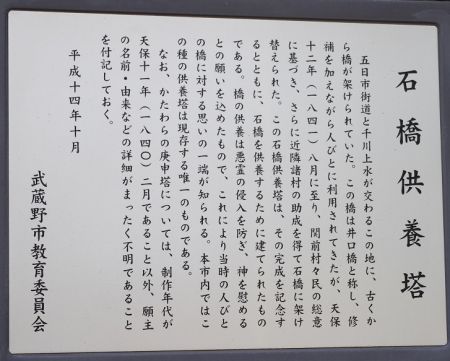 石橋供養塔
五日市街道と千川上水が交わるこの地に、古くか
ら橋が架けられていた。この橋は井口橋と称し、修
補を加えながら人びとに利用されてきたが、天保
十二年（一八四一）八月に至り、関前村々民の総意
に基づき、さらに近隣諸村の助成を得て石橋に架け
替えられた。この石橋供養塔は、その完成を記念す
るとともに、石橋を供養するために建てられたもの
である。橋の供養は悪霊の侵入を防ぎ、神を慰める
との願いを込めたもので、これにより当時の人びと
の橋に対する思いの一端が知られる。本市内ではこ
の種の供養塔は現存する唯一のものである。
なお、かたわらの庚申塔については、制作年代が
天保十一年（一八四〇）二月であること以外、願主
の名前・由来などの詳細がまったく不明であること
を付記しておく。
平成十四年十月
武蔵野市教育委員会